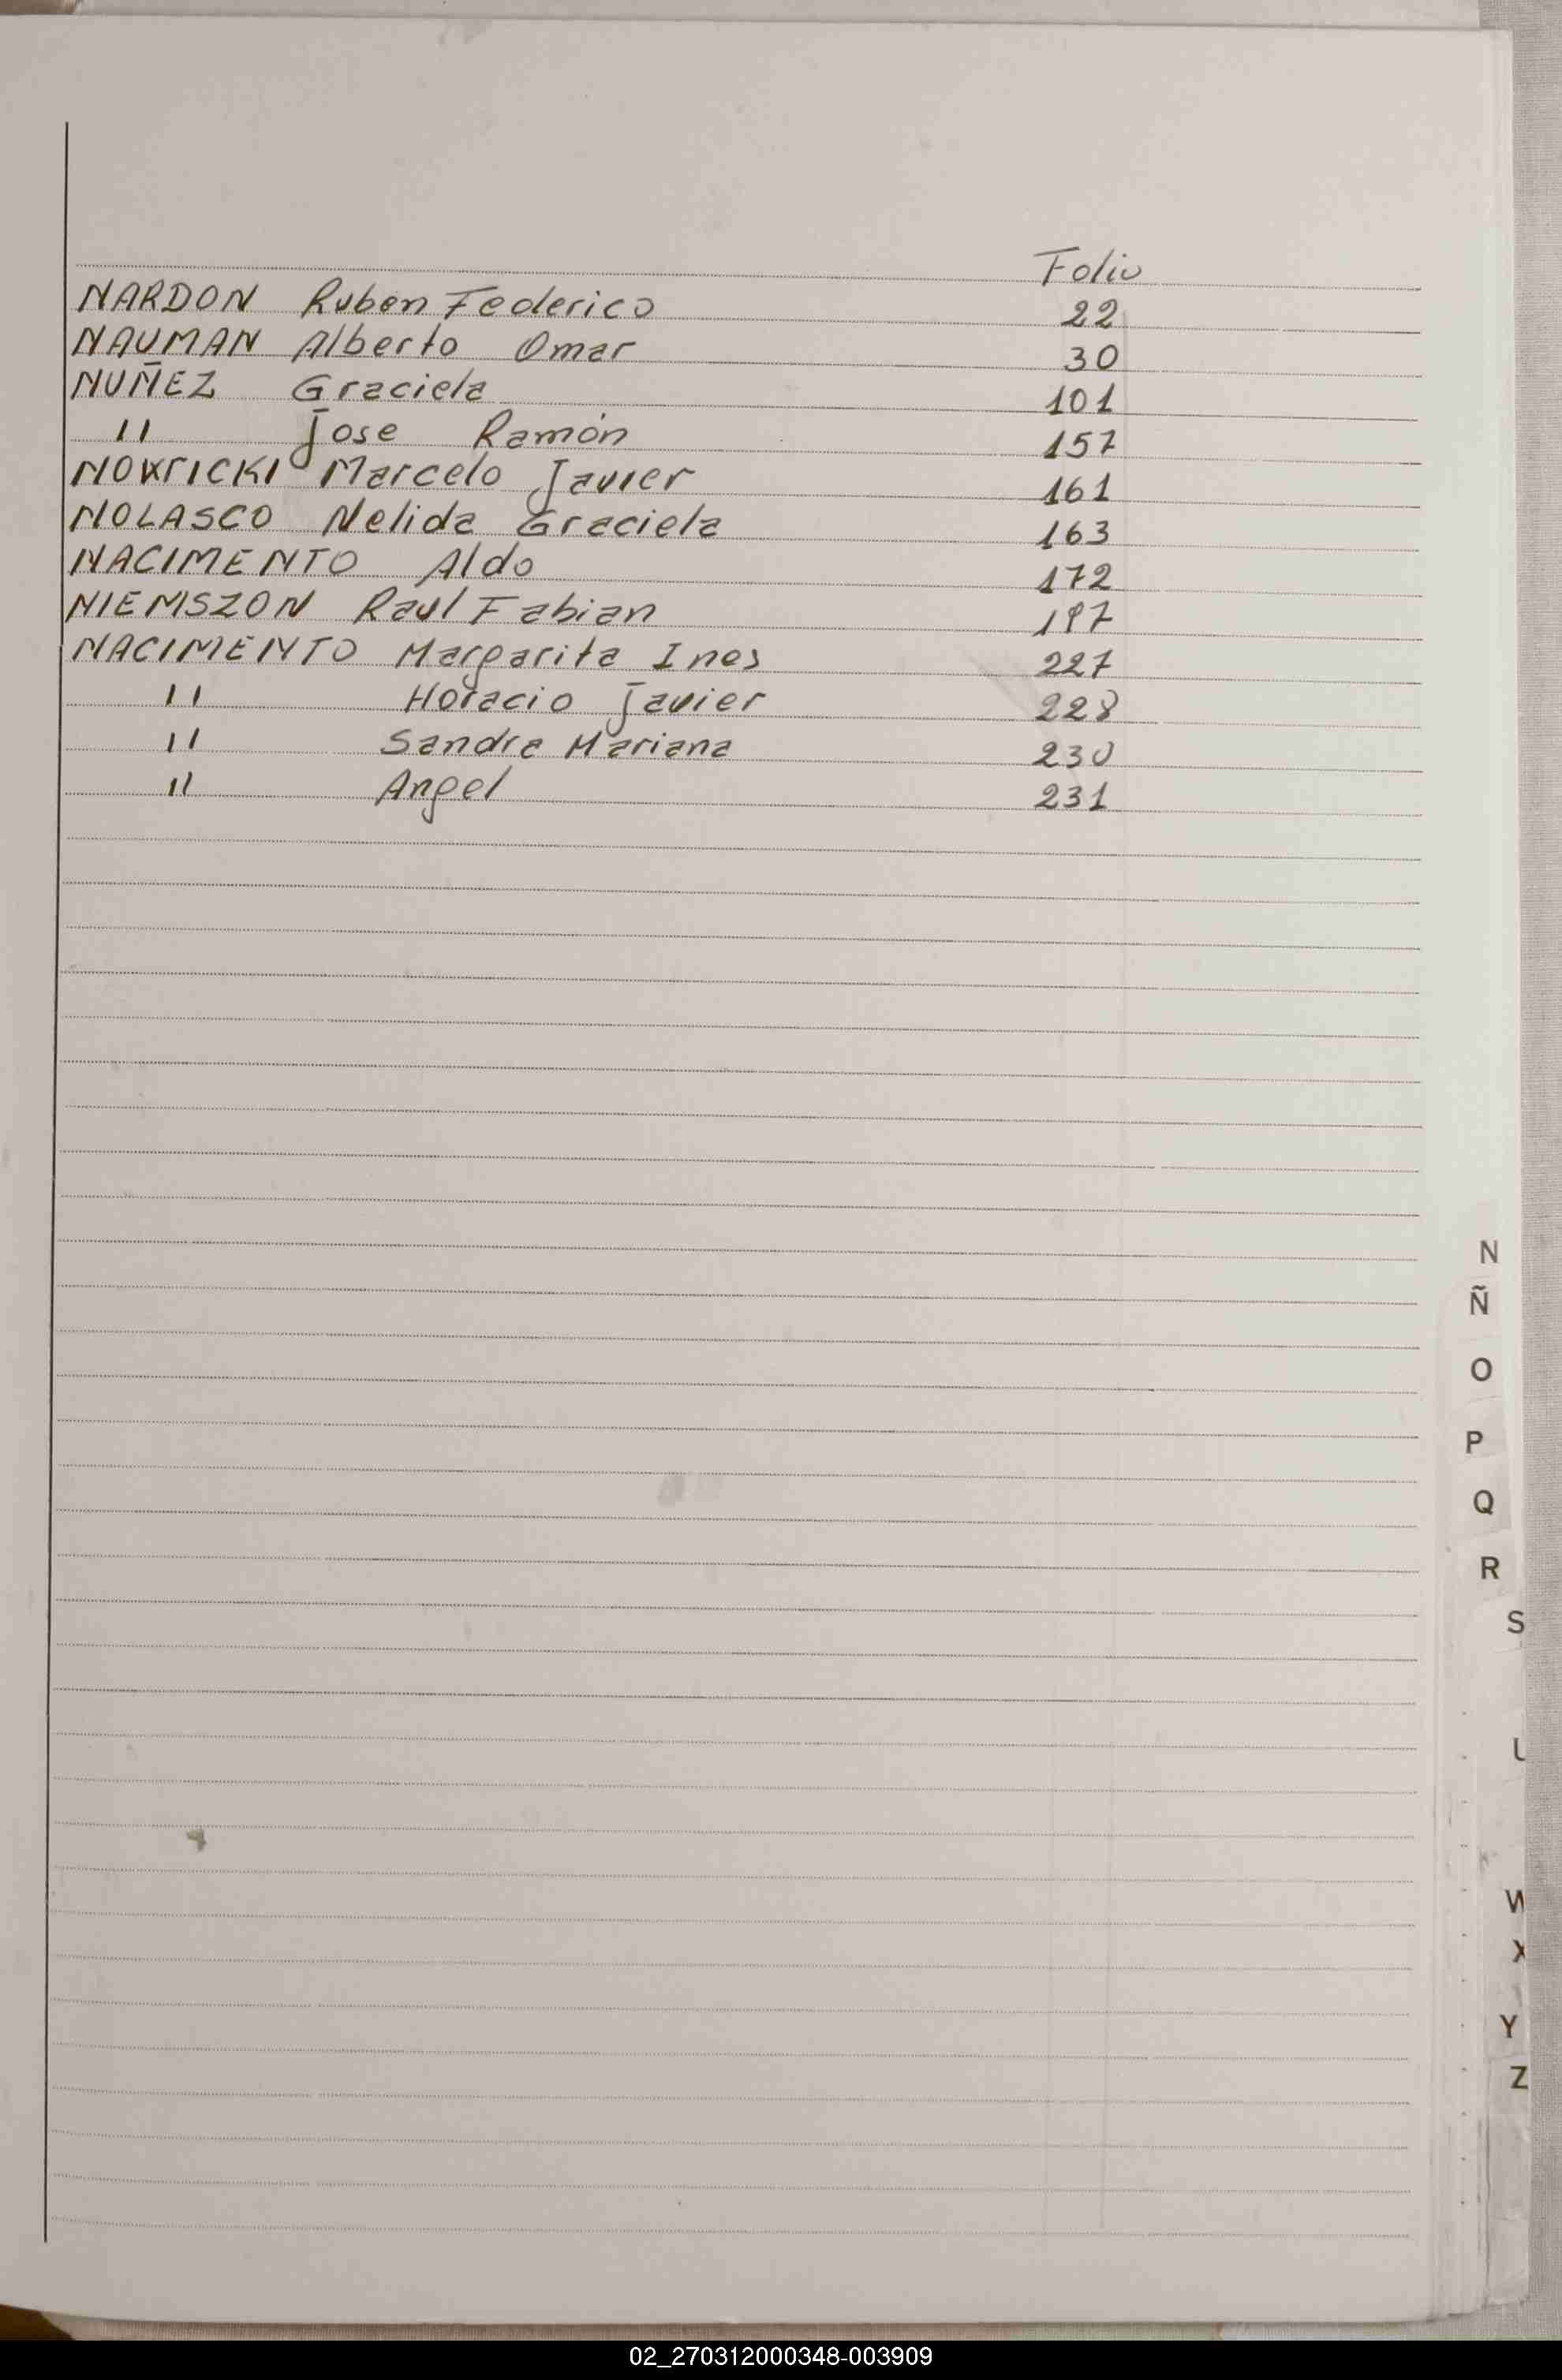 Folio
NARDON Ruben Federico 22
NAUMAN Alberto Omar 30
NUÑEZ Graciela 101
" Jose Ramón 157
Marcelo Javier 161
NOLASCO Nelida Graciela 163
NACIMENTO Aldo 172
NIEMSZON Raul Fabian
NACIMENTO Margarita Ines 227
" Horacio Javier 228
" Sandra Mariana 230
" Angel 231
N
Ñ
O
P
Q
R
S
W
X
Y
Z
02_270312000348-003909